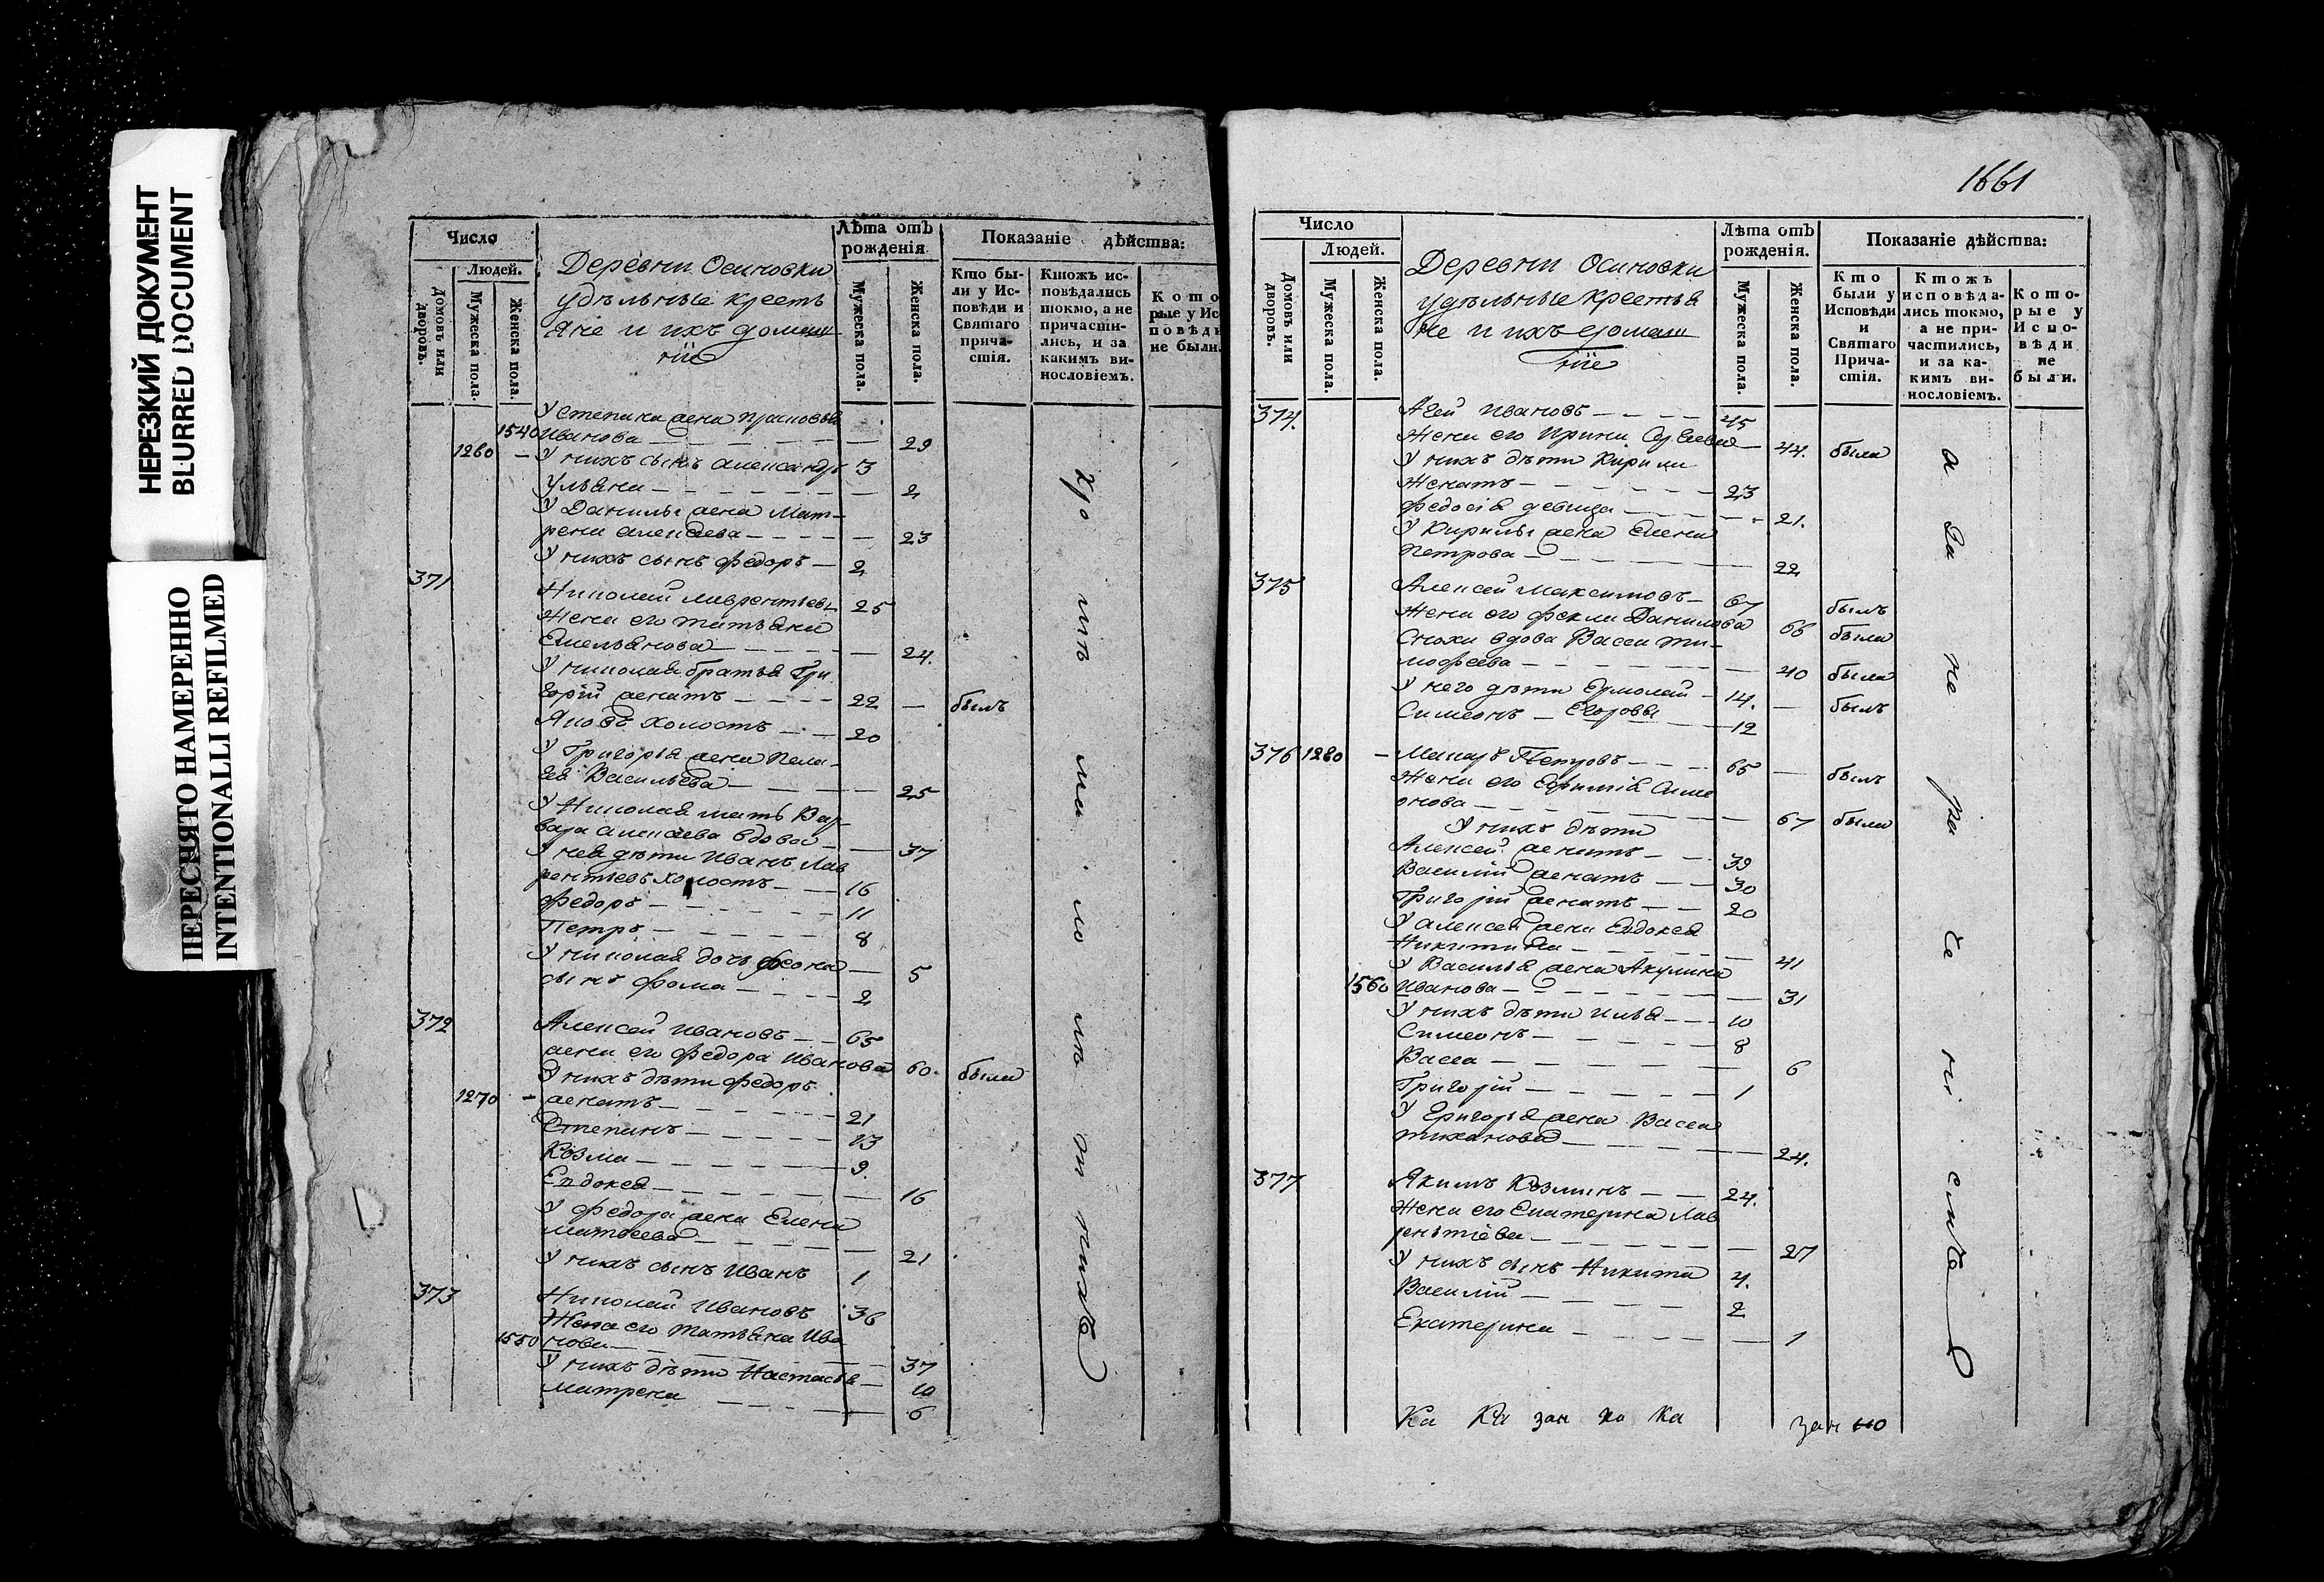 НЕРЕЗКИЙ ДОКУМЕНТ
BLURRED DOCUMENT
ПЕРЕСНЯТО НАМЕРЕННО
INTENTIONALLI REFILMED
Число
Людей.
Домовъ или дворовъ.
Мужеска пола.
Женска пола.
Деревни Осиновки
удѣльные кресть
яне и ихъ домаш
ніе
Лѣта отъ рожденія
Мужеска пола.
Женска пола.
Показаніе дѣйства:
Кто бы-
ли у Ис-
повѣди и
Святаго
прича-
стія.
Ктожъ ис-
повѣдались
токмо, а не
причасти-
лись, и за
какимъ ви-
нословіемъ.
Кото
рые у Ис
повѣди
не были.
У Степана жена Прасковья
1540 Иванова — 29
1260 — У нихъ сынъ Александръ 3
Ульяна — 2
У Данилы жена Мат-
рена Алексѣева — 23
У нихъ сынъ Федоръ — 2
371 Николай Лаврентьевъ 25
Жена его Татьяна
Емельянова — 24.
У Николая братья Гри
горій женатъ — 22 — былъ
Яковъ холостъ — 20
У Григорья жена Пела
гея Васильева — 25
У Николая мать Вар-
вара Алексѣева вдова — 37
У нея дѣти Иванъ Лав
рентьевъ холостъ — 16
Федоръ — 11
Петръ — 8
У Николая дочь — 5
сынъ Фома — 2
372 Алексей Ивановъ — 65
жена его Федора Иванова 60. была
У нихъ дѣти Федоръ
1270 — женатъ — 21
Степанъ — 13
Козма — 9
Евдокея — 16
У Федора жена Елена
Матвеева — 21
У нихъ сынъ Иванъ 1
373 Николай Ивановъ 36
Жена его Татьяна Ива
1550 нова — 37
У нихъ дѣти Настасья — 10
Матрена — 6
1661
Число
Людей.
Домовъ или дворовъ.
Мужеска пола.
Женска пола.
Деревни Осиновки
удѣльные крестья
не и ихъ домаш
ніе
Лѣта отъ рожденія.
Мужеска пола.
Женска пола.
Показаніе дѣйства:
Кто
были у
Исповѣди
и
Святаго
Прича-
стія.
Ктожъ
исповѣда-
лись токмо,
а не при-
частились,
и за ка-
кимъ ви-
нословіемъ.
Кото-
рые у
Испо-
вѣди
не
были.
374. Агей Ивановъ — 45
Жена его Ирина — 44. была
У нихъ дѣти Кирила
Женатъ — 23
Федосія девица — 21.
У Кирилы жена Елена
Петрова — 22
375 Алексей Максимовъ — 67 былъ
Жена его Фекла Данилова 66 была
Сноха вдова Васса Ти-
мофеева — 40 была
У него дѣти Ермолай — 14. — былъ
Симеонъ — Егоровы — 12
376 1280 — Макаръ Петровъ — 65 — былъ
Жена его Ефимія Симе
онова — 67 была
У нихъ дѣти
Алексей женатъ — 39
Василій женатъ — 30
Григорій женатъ — 20
У Алексея жена Евдокея
Никитина — 41
У Василья жена Акулина
1560 Иванова — 31
У нихъ дѣти Илья — 10
Симеонъ — 8
Васса — 6
Григорій — 1
У Григорья жена Васса
Тиханова — 24.
377 Якимъ Козминъ — 24.
Жена его Екатерина Лав
рентіева — 27
У нихъ сынъ Никита 4.
Василій — 2
Екатерина — 1